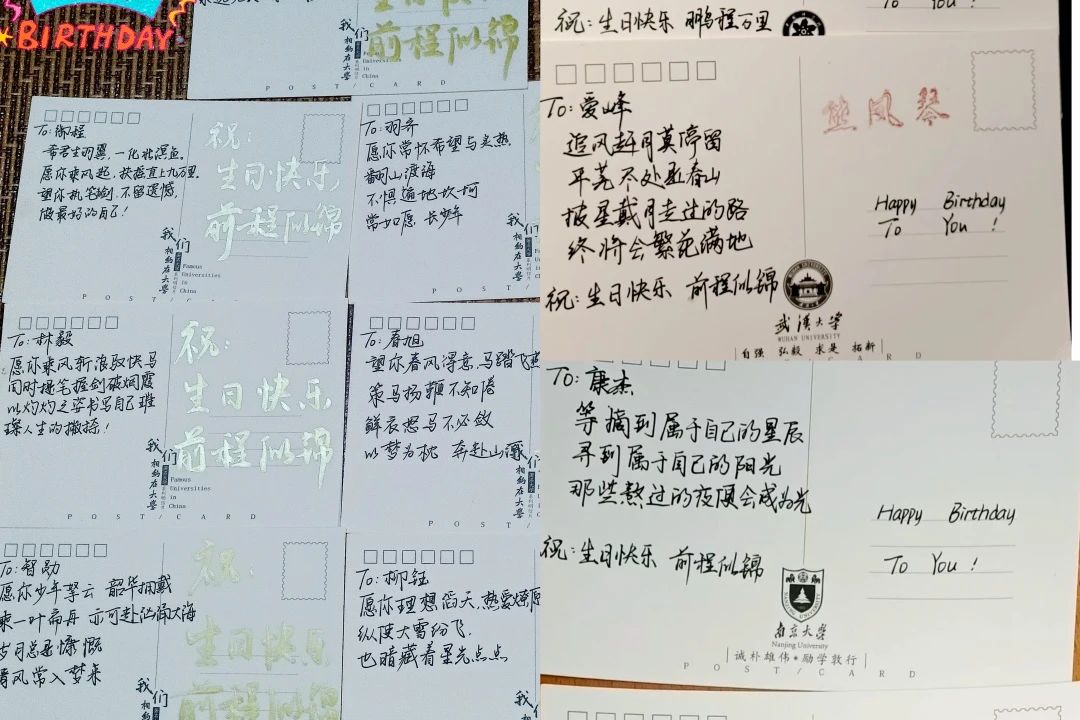 BIRTHDAY
前程似锦
我们
相约在大学
Famous
Universities
in
China
POST/CARD
To: 御程
希君生羽翼,一化北溟鱼。
愿你乘风起,扶摇直上九万里。
望你执笔为剑,不留遗憾,
做最好的自己!
祝:
生日快乐,
前程似锦
我们
相约在大学
Famous
Universities
in
China
POST/CARD
To: 羽齐
愿你常怀希望与炙热
翻山渡海
不惧遍地坎坷
常如愿 长少年
我
相约在大学
To: 林毅
愿你乘风斩浪驭快马
同时提笔握剑破烟霞
以灼灼之姿书写自己璀
璨人生的撒摀!
祝:
生日快乐
前程似锦
我们
相约在大学
Famous
Universities
in
China
POST/CARD
To: 春旭
望你春风得意,马踏飞燕
策马扬鞭不知倦
鲜衣怒马不必敛
以梦为枕 奔赴山河
我们
相约在大学
POST/CARD
To: 智勋
愿你少年挐云 韶华拥戴
乘一叶扁舟 亦可赴汹涌大海
岁月总是慷慨
清风常入梦来
祝:
生日快乐
前程似锦
我们
相约
To: 柳钰
愿你理想滔天,热爱燎原
纵使大雪纷飞,
也暗藏着星光点点
我们
相约
祝:生日快乐 鹏程万里
To You !
To: 爱峰
追风赶月莫停留
平芜尽处是春山
披星戴月走过的路
终将会繁花满地
祝:生日快乐 前程似锦
熊凤琴
Happy Birthday
To You !
武汉大学
WUHAN UNIVERSITY
自强 弘毅 求是 拓新
CARD
To: 康杰
等摘到属于自己的星辰
寻到属于自己的阳光
那些熬过的夜便会成为光
祝:生日快乐 前程似锦
Happy Birthday
To You !
南京大学
Nanjing University
诚朴雄伟·励学敦行
POST/CARD